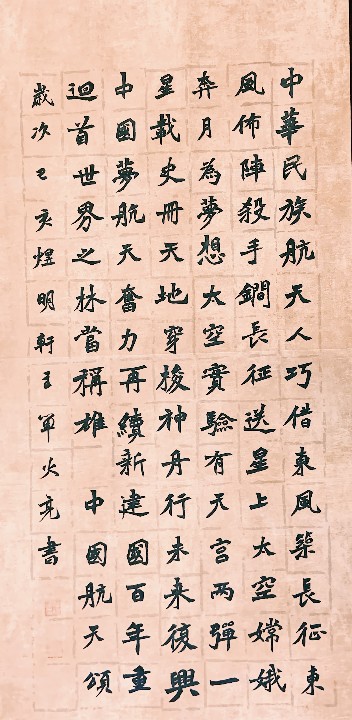 中華民族航天人巧借東風築長征東
風佈陣殺手鐧長征送星上太空嫦娥
奔月為夢想太空實驗有天宮兩彈一
星載史冊天地穿梭神舟行未来復興
中國夢航天奮力再續新建國百年重
迴首世界之林當稱雄 中國航天頌
歲次己亥煜明軒王軍火亮書